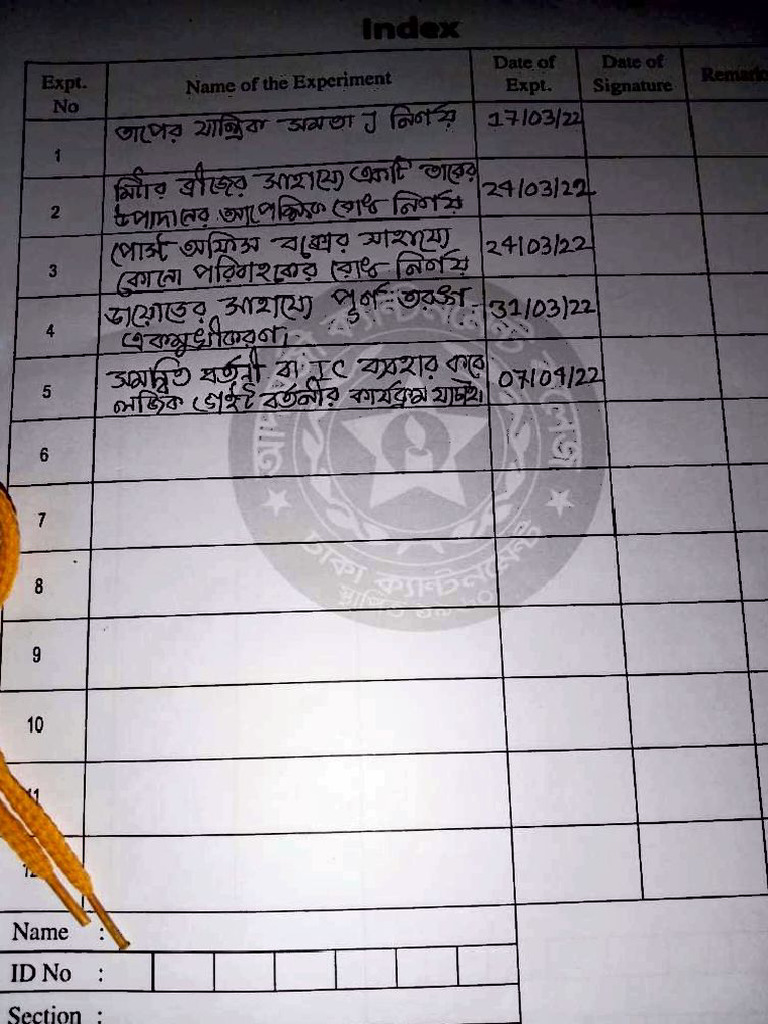 Index
Expt. No Name of the Experiment Date of Expt. Date of Signature Remark
1 তাপের যান্ত্রিক সমতা J নির্ণয় 17/03/22
2 মিটার ব্রীজের সাহায্যে একটি তারের
উপাদানের আপেক্ষিক রোধ নির্ণয় 24/03/22
3 পোস্ট অফিস বক্সের সাহায্যে
কোনো পরিবাহকের রোধ নির্ণয় 24/03/22
4 ডায়োডের সাহায্যে পূর্ণ তরঙ্গ
একমুখীকরণ। 31/03/22
5 সমন্বিত বর্তনী বা IC ব্যবহার করে
লজিক গেইট বর্তনীর কার্যক্রম যাচাই। 07/04/22
6
7
8
9
10
11
12
ঢাকা ক্যান্টনমেন্ট
স্থাপিত
Name :
ID No :
Section :